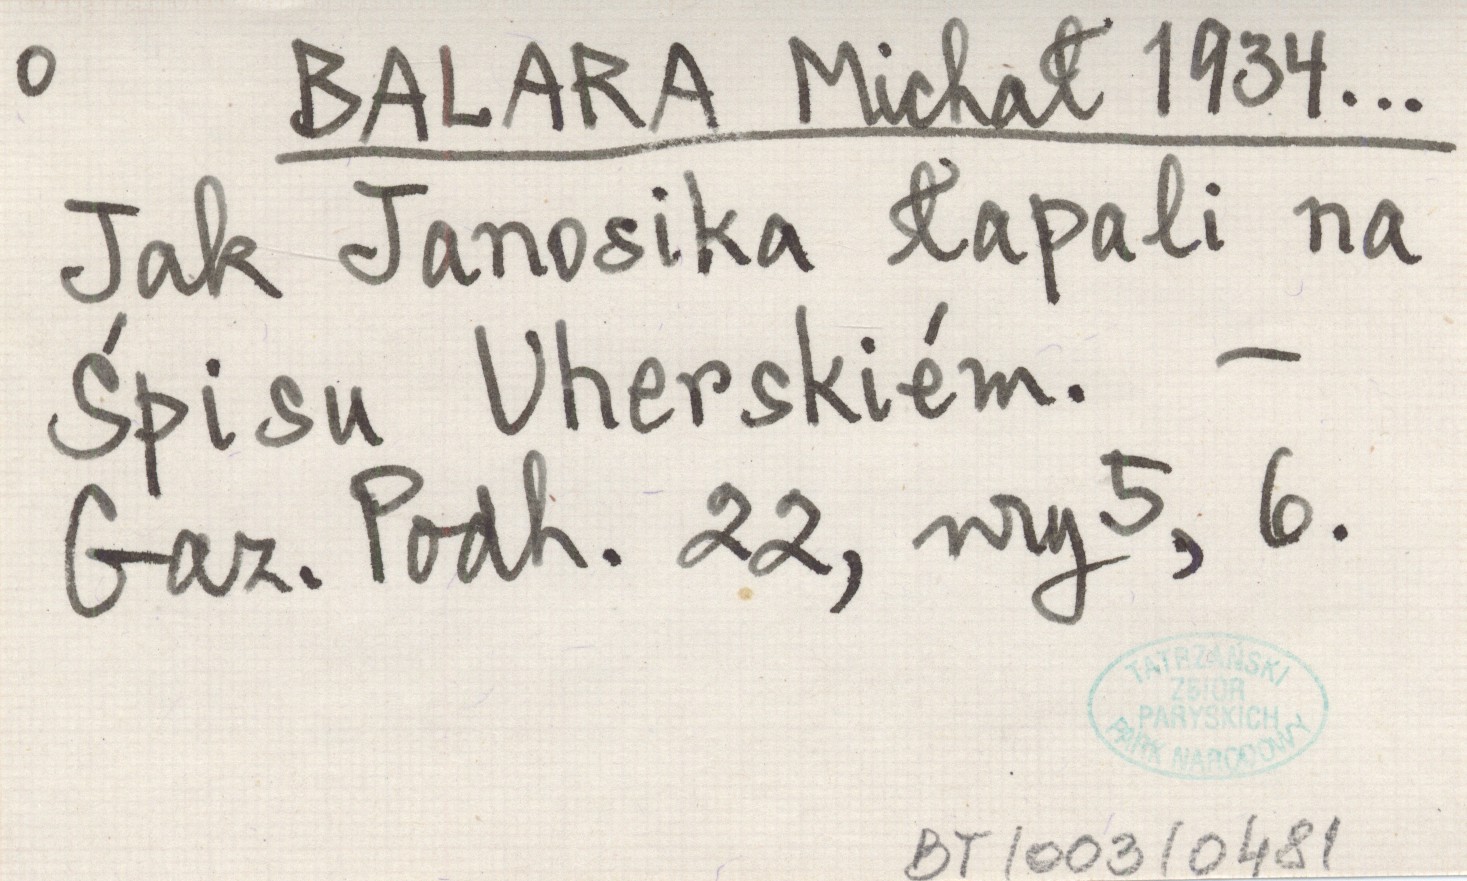 o BALARA Michał 1934...
Jak Janosika łapali na
Śpisu Uherskiém. —
Gaz. Podh. 22, nry 5, 6.
TATRZAŃSKI
ZBIÓR
PARYSKICH
PARK NARODOWY
BT/003/0481